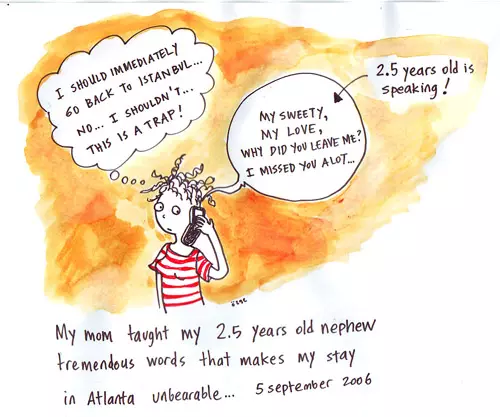 I SHOULD IMMEDIATELY
GO BACK TO ISTANBUL...
NO... I SHOULDN'T...
THIS IS A TRAP!
2.5 years old is
speaking!
MY SWEETY,
MY LOVE,
WHY DID YOU LEAVE ME?
I MISSED YOU A LOT...
My mom taught my 2.5 years old nephew
tremendous words that makes my stay
in Atlanta unbearable... 5 september 2006